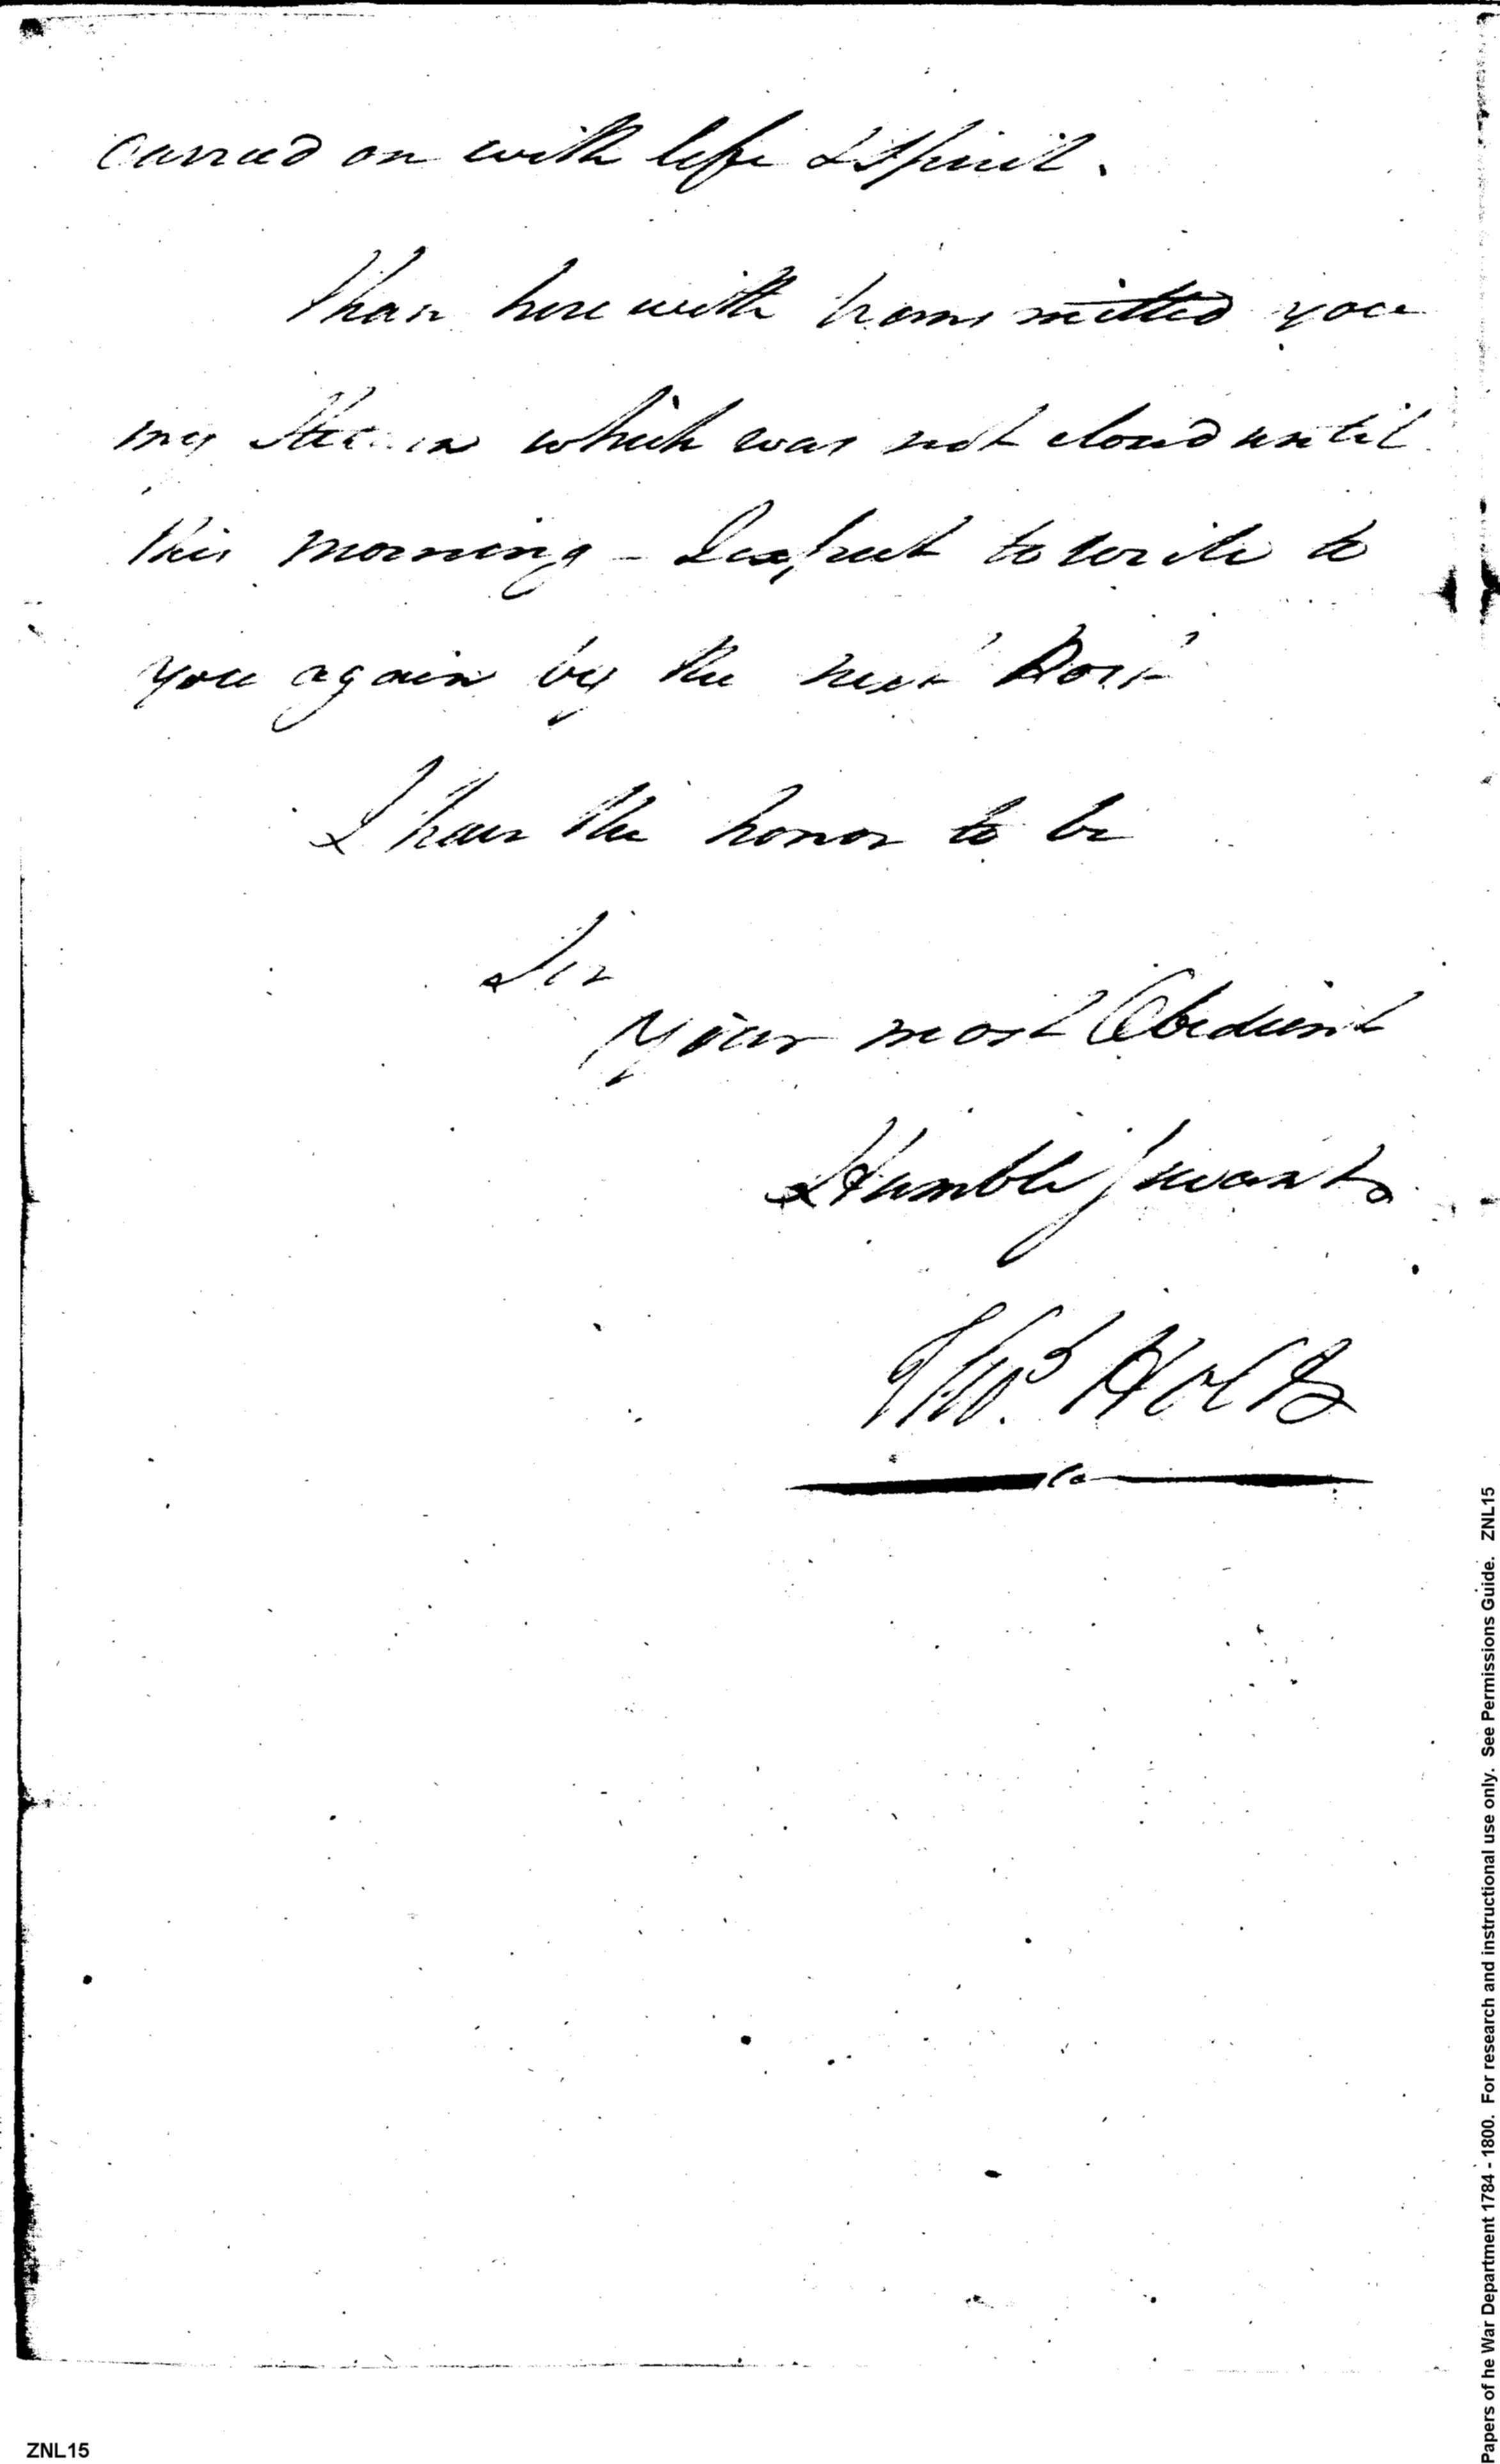 carried on with life & Spirit.
I have herewith transmitted you
my which was not closed until
this morning - I expect to write to
you again by the next Post
I have the honor to be
Sir
Your most Obedient
Humble Servant
Thos Holt
Papers of he War Department 1784 - 1800. For research and instructional use only. See Permissions Guide. ZNL15
ZNL15